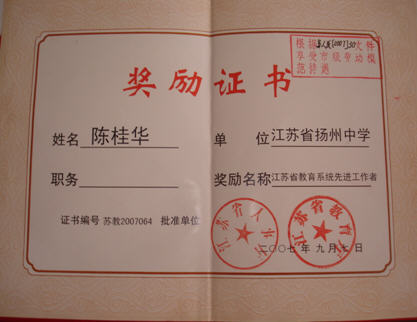 根据苏人发[2007]50文件
享受市级劳动模
范待遇
奖励证书
姓名 陈桂华 单位 江苏省扬州中学
职务 奖励名称 江苏省教育系统先进工作者
证书编号 苏教2007064 批准单位
江苏省人事厅
江苏省教育厅
二〇〇七年九月七日